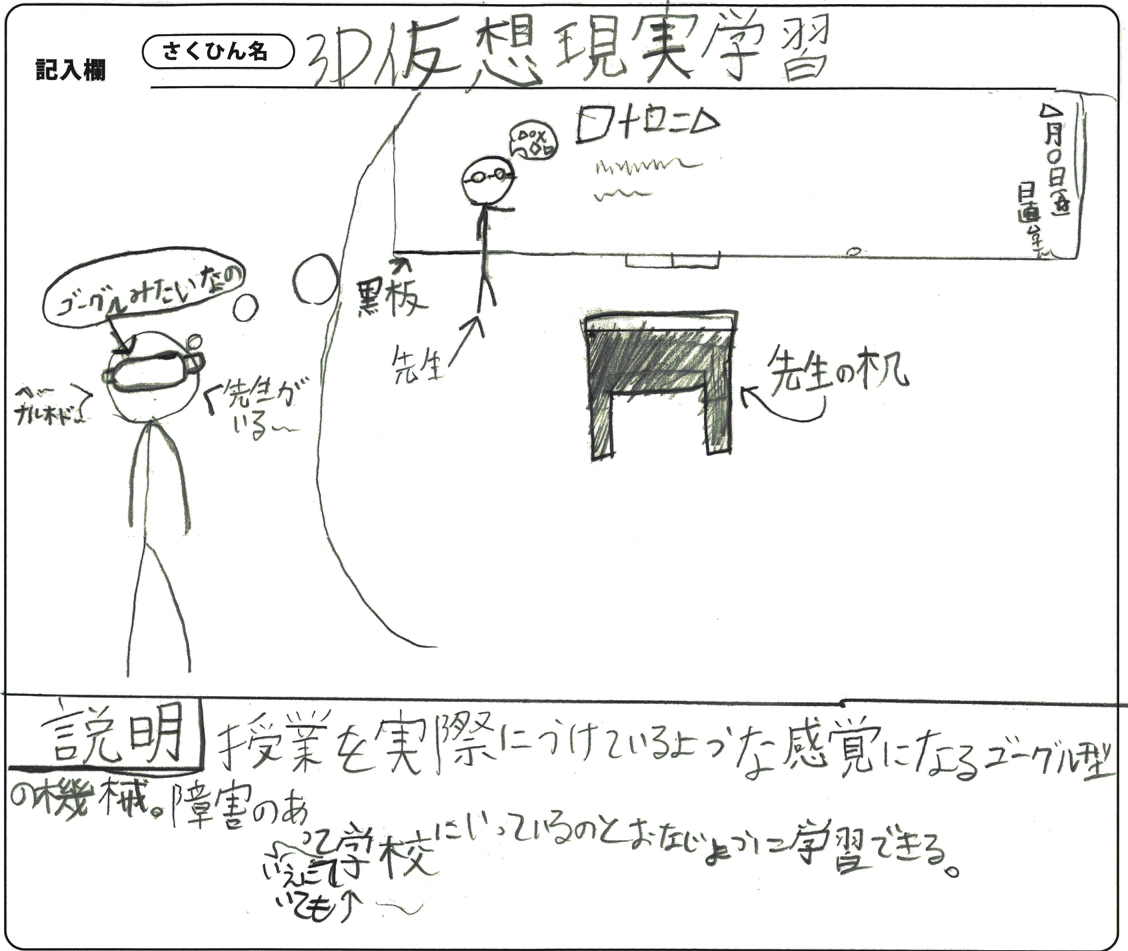 記入欄
さくひん名
3D仮想現実学習
□+□=△
△月〇日
日直
ゴーグルみたいなの
黒板
先生
先生の机
先生が
いる〜
説明
授業を実際にうけているような感覚になるゴーグル型
の機械。障害のあ
って学校にいっているのとおなじように学習できる。
いえにて
いても↑